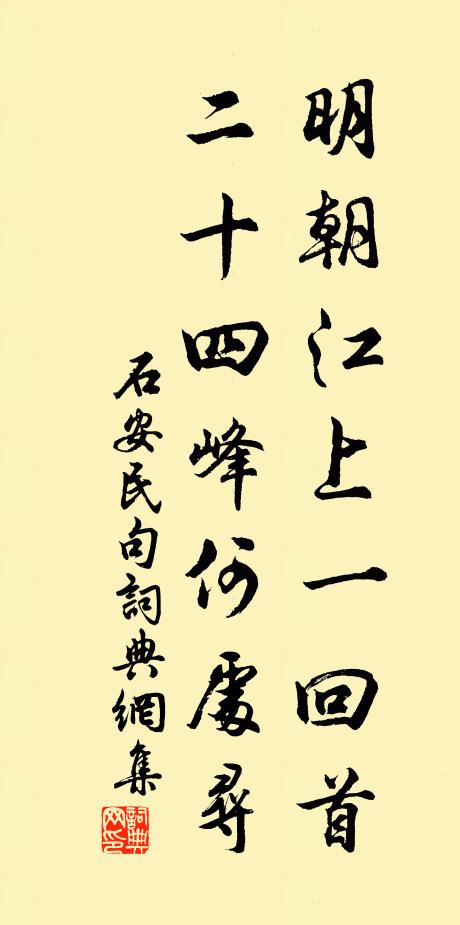 明朝江上一回首
二十四峰何處尋
石安民句詞典網集
詞典網印